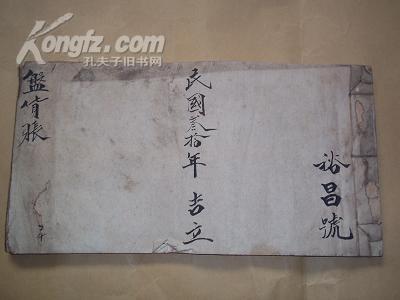 Kongfz.com
孔夫子旧书网
裕昌號
民國叁拾年吉立
盤貨賬